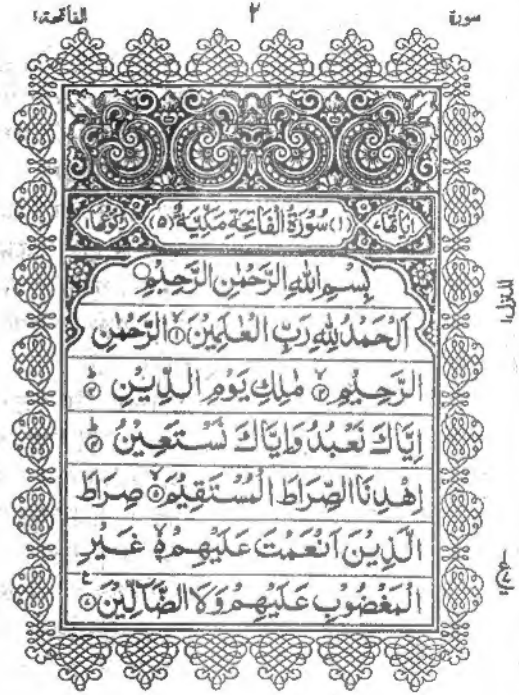 سورة ٢ الفاتحة١
اٰیاتها٧ (١) سُوْرَةُ الْفَاتِحَةِ مَكِّيَّةٌ (٥) رکوعها١
بِسْمِ اللّٰهِ الرَّحْمٰنِ الرَّحِيْمِ
اَلْحَمْدُ لِلّٰهِ رَبِّ الْعٰلَمِيْنَ ۙ﴿١﴾ الرَّحْمٰنِ
الرَّحِيْمِ ۙ﴿٢﴾ مٰلِكِ يَوْمِ الدِّيْنِ ؕ﴿٣﴾
اِيَّاكَ نَعْبُدُ وَاِيَّاكَ نَسْتَعِيْنُ ؕ﴿٤﴾
اِهْدِنَا الصِّرَاطَ الْمُسْتَقِيْمَ ۙ﴿٥﴾ صِرَاطَ
الَّذِيْنَ اَنْعَمْتَ عَلَيْهِمْ ۙ۬ غَيْرِ
الْمَغْضُوْبِ عَلَيْهِمْ وَلَا الضَّآلِّيْنَ
المنزل١